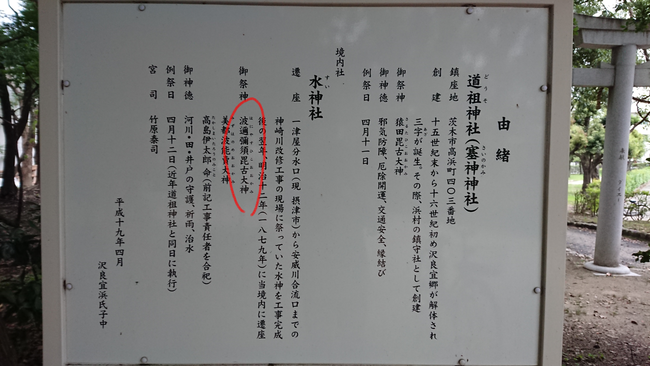 由緒
道祖神社(塞神神社)
どうそ
さいのかみ
鎮座地 茨木市高浜町四〇三番地
創建 十五世紀末から十六世紀初め沢良宜郷が解体され
三字が誕生。その際、浜村の鎮守社として創建
御祭神 猿田毘古大神。
御神徳 邪気防障、厄除開運、交通安全、縁結び
例祭日 四月十一日
境内社
水神社
すい
遷座 一津屋分水口(現 摂津市)から安威川合流口までの
神崎川改修工事の現場に祭っていた水神を工事完成
後の翌年、明治十二年(一八七九年)に当境内に遷座
御祭神 波邇彌須毘古大神。
美都波能賣大神
高島伊太郎命(前記工事責任者を合祀)
御神徳 河川・田・井戸の守護、祈雨、治水
例祭日 四月十二日(近年道祖神社と同日に執行)
宮司 竹原泰司
平成十九年四月
沢良宜浜氏子中